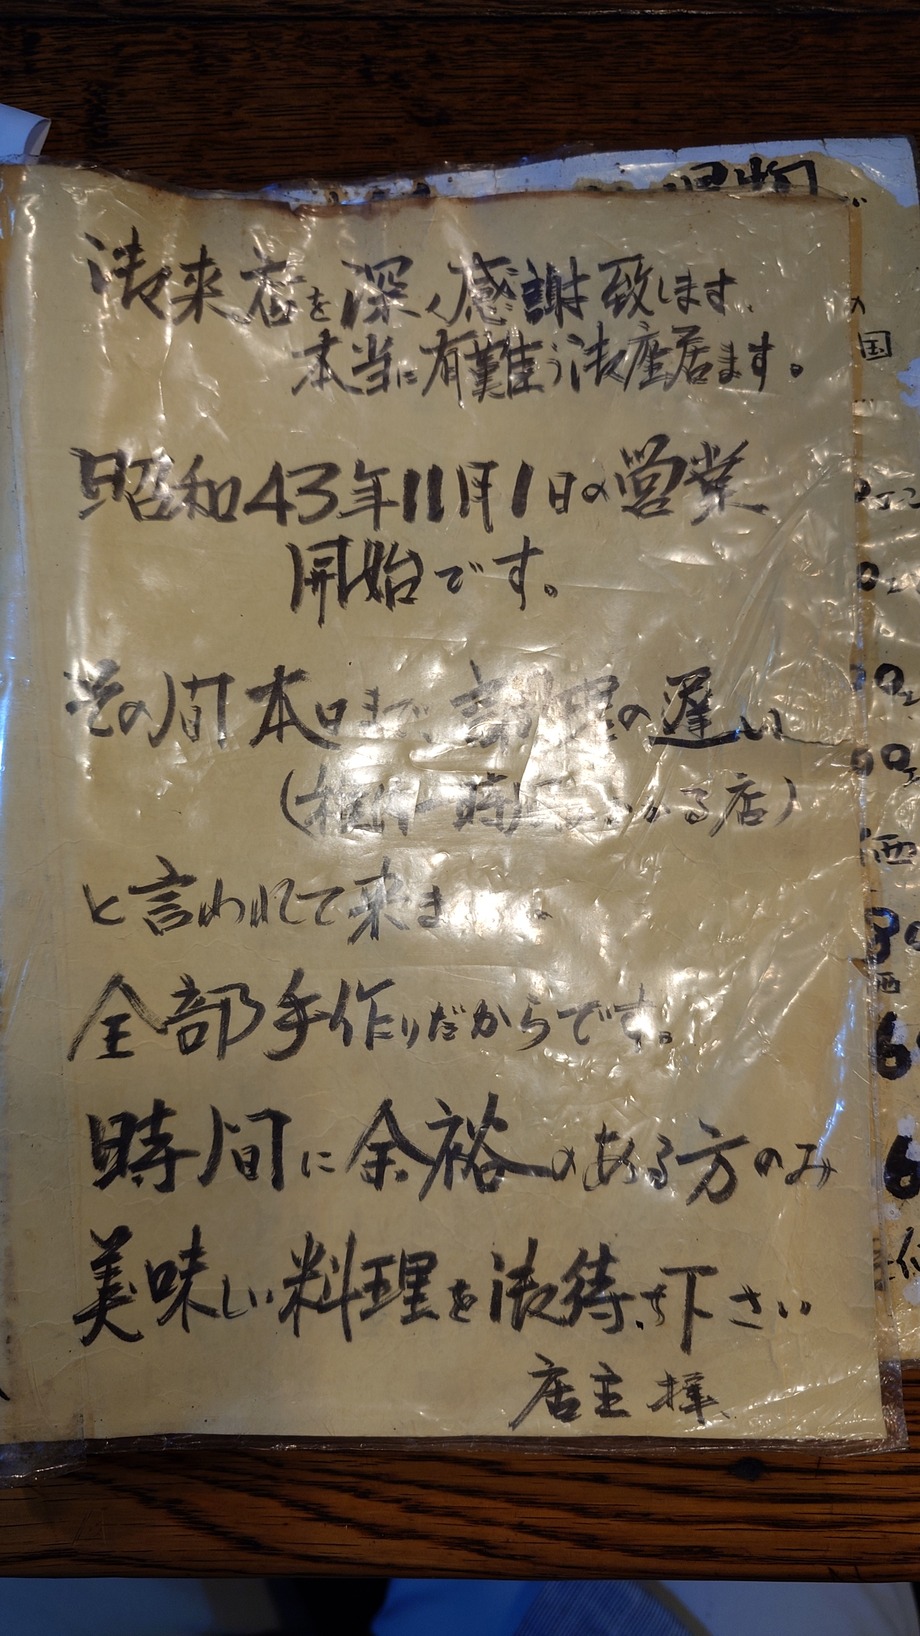 御来店を深く感謝致します。
本当に有難う御座居ます。
昭和43年11月1日の営業
開始です。
その間本日まで、料理の遅い
時間 かかる店)
と言われて来ま
全部手作りだからです。
時間に余裕のある方のみ
美味しい料理を御待ち下さい
店主 拝
国